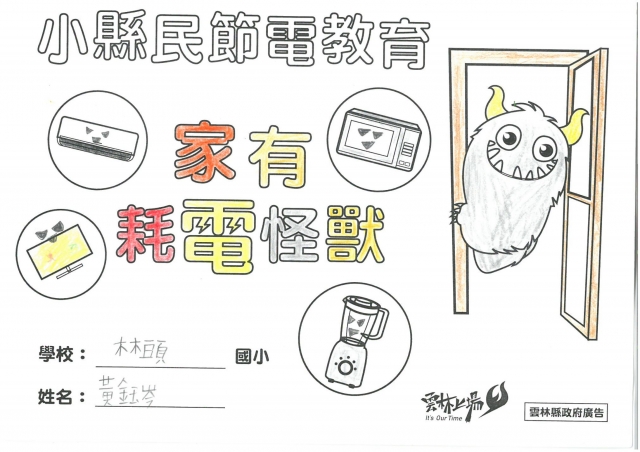 小縣民節電教育
家有
耗電怪獸
學校： 林頭 國小
姓名： 黃鈺岑
雲林上場
It's Our Time
雲林縣政府廣告